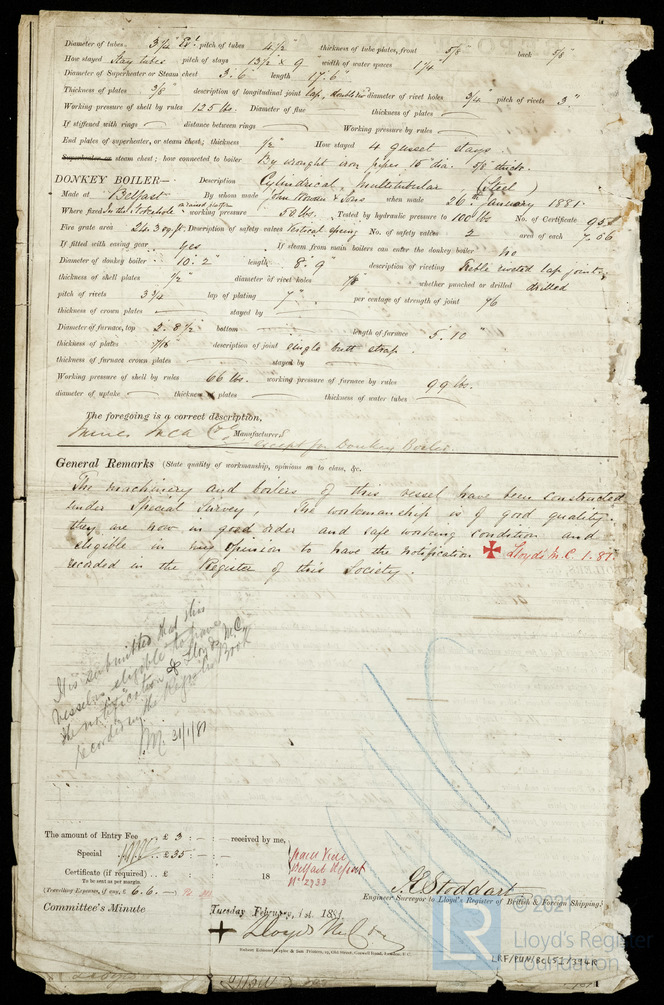 Diameter of tubes 3 1/4" Ex! pitch of tubes 4 1/2" thickness of tube plates, front 5/8" back 5/8"
How stayed Stay tubes pitch of stays 13 1/2 x 9" width of water spaces 1 1/4"
Diameter of Superheater or Steam chest 3'.6" length 17'.6"
Thickness of plates 3/8" description of longitudinal joint lap, diameter of rivet holes 3/4" pitch of rivets 3"
Working pressure of shell by rules 125 lbs. Diameter of flue thickness of plates
If stiffened with rings distance between rings Working pressure by rules
End plates of superheater, or steam chest; thickness 1/2" How stayed 4 Gusset stays
Superheater or steam chest; how connected to boiler By wrought iron pipes 15" dia. 5/8 thick.
DONKEY BOILER— Description Cylindrical, Multitubular (Steel)
Made at Belfast By whom made John Rowan & Sons when made 26th January 1881.
Where fixed In the Stokehole on raised platform working pressure 50 lbs. Tested by hydraulic pressure to 100 lbs No. of Certificate
Fire grate area 24.3 sq ft. Description of safety valves Vertical spring No. of safety valves 2 area of each 7.06
If fitted with easing gear yes If steam from main boilers can enter the donkey boiler no
Diameter of donkey boiler 10'.2" length 8'.9" description of riveting Treble riveted lap joints,
thickness of shell plates 1/2" diameter of rivet holes 7/8" whether punched or drilled drilled
pitch of rivets 3 3/4 lap of plating 7" per centage of strength of joint 76
thickness of crown plates stayed by
Diameter of furnace, top 2'.8 1/2" bottom length of furnace 5'.10"
thickness of plates 7/16" description of joint single butt strap.
thickness of furnace crown plates stayed by
Working pressure of shell by rules 66 lbs. working pressure of furnace by rules 99 lbs.
diameter of uptake thickness of plates thickness of water tubes
The foregoing is a correct description,
Manufacturers
except for Donkey Boiler.
General Remarks (State quality of workmanship, opinions as to class, &c.
The machinery and boilers of this vessel have been constructed
under Special Survey, The workmanship is of good quality.
they are now in good order and safe working condition and
eligible in my opinion to have the notification ✠ Lloyd's M.C. 1.81.
recorded in the Register of this Society.
It is submitted that this
vessel is eligible to have
the notification ✠ Lloyds M.C.
recorded in the Register Book
31/1/81
The amount of Entry Fee .. £ 3 : – : – received by me,
Special .. £35 : – : –
Certificate (if required) .. £ : : 18
To be sent as per margin.
(Travelling Expenses, if any, £ 6.6. –
Belfast Report
No 2933
J. E. Stoddart
Engineer Surveyor to Lloyd's Register of British & Foreign Shipping.
Committee's Minute Tuesday February, 1st 1881.
+ Lloyds M.C.
© 2021
LR
Lloyd's Register
Foundation
LRF/PUN/BEL51/394R